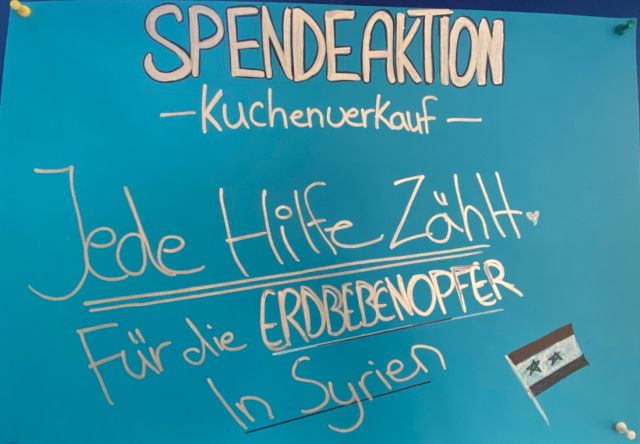 SPENDEAKTION
– Kuchenverkauf –
Jede Hilfe Zählt.
Für die ERDBEBENOPFER
In Syrien